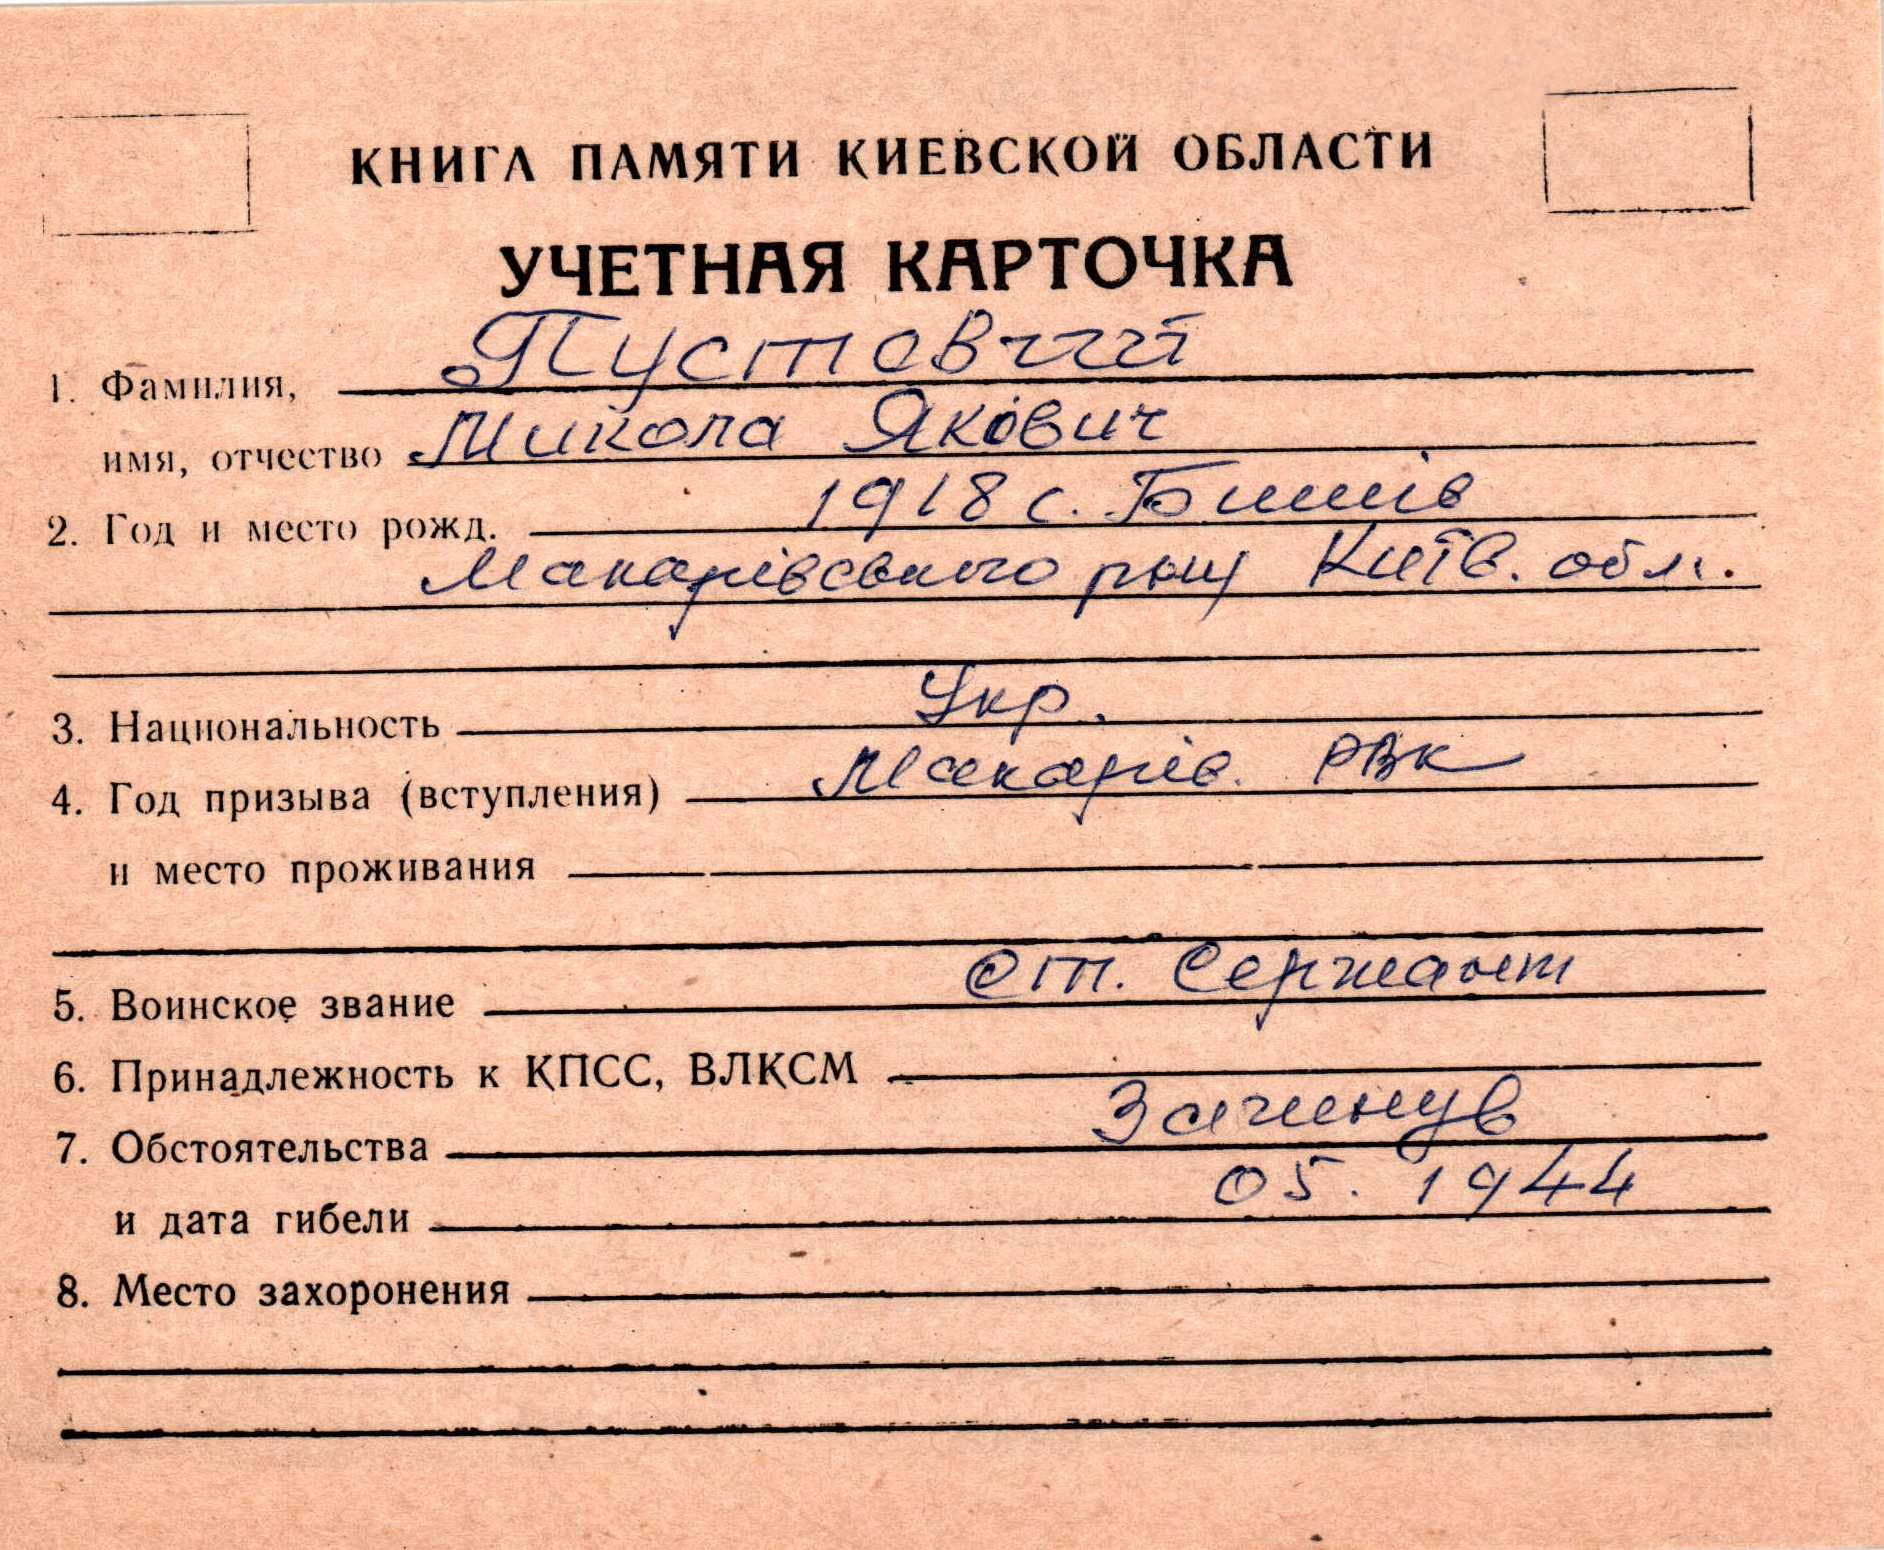 КНИГА ПАМЯТИ КИЕВСКОЙ ОБЛАСТИ
УЧЕТНАЯ КАРТОЧКА
1. Фамилия,
имя, отчество Микола Якович
2. Год и место рожд. 1918 с. Бишів
Макарівського р-ну Київ. обл.
3. Национальность Укр.
4. Год призыва (вступления) Макарів. РВК
и место проживания
5. Воинское звание Ст. Сержант
6. Принадлежность к КПСС, ВЛКСМ
7. Обстоятельства Загинув
и дата гибели 05. 1944
8. Место захоронения